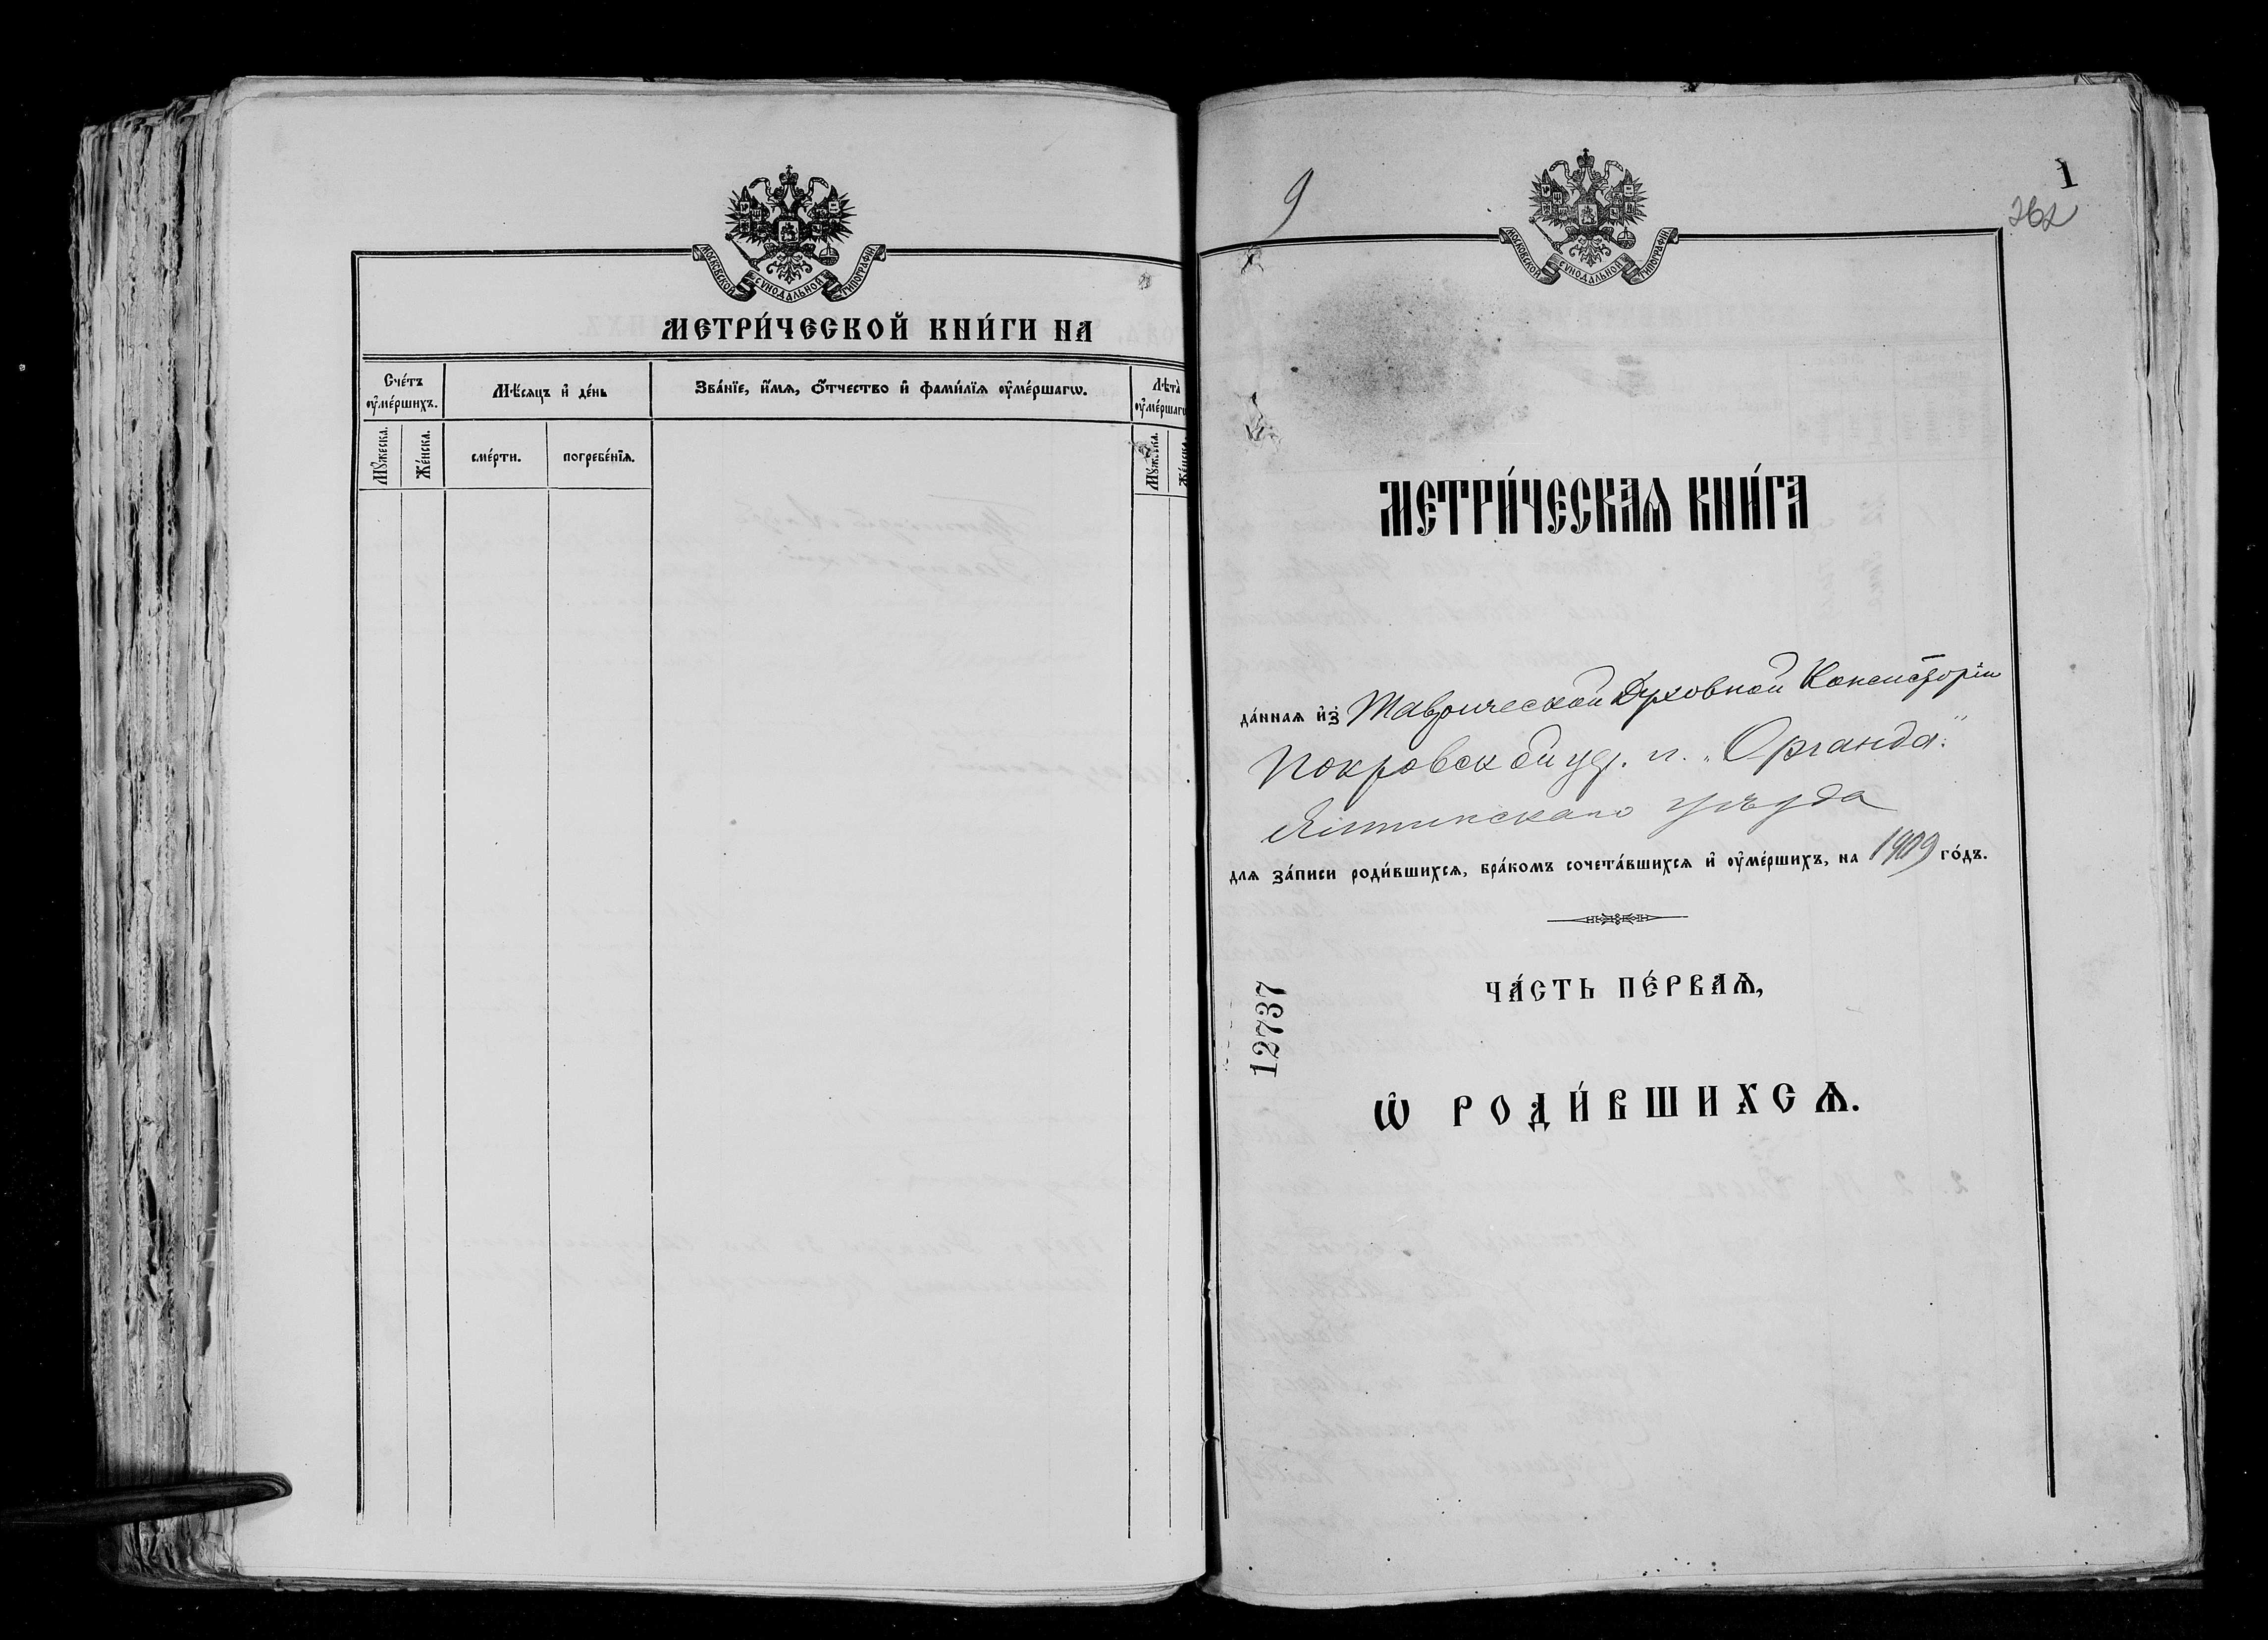 МОСКОВСКОЙ СѴНОДАЛЬНОЙ ТИПОГРАФІИ
МЕТРИ́ЧЕСКОЙ КНИ́ГИ НА
Сче́тъ ᲂу҆ме́ршихъ.
Мѣ́сяцъ и҆ де́нь
Зва́нїе, и҆́мѧ, ѻ҆́тчество и҆ фами́лїѧ ᲂу҆ме́ршагѡ.
Лѣ́та
ᲂу҆ме́ршагѡ
Мꙋ́жеска.
Же́нска.
сме́рти.
погребе́нїѧ.
Мꙋ́жеска.
9
МОСКОВСКОЙ СѴНОДАЛЬНОЙ ТИПОГРАФІИ
1
262
МЕТРИ́ЧЕСКАѦ КНИ́ГА
да́ннаѧ и҆з̾ Таврической Духовной Консисторіи
Покровской ц. „Ореанда“
Ялтинскаго уѣзда
для за́писи роди́вшихсѧ, бра́комъ сочета́вшихсѧ и҆ ᲂу҆ме́ршихъ, на 1909 го́дъ.
ЧА́СТЬ ПЕ́РВАѦ,
12737
Ѽ РОДИ́ВШИХСѦ.